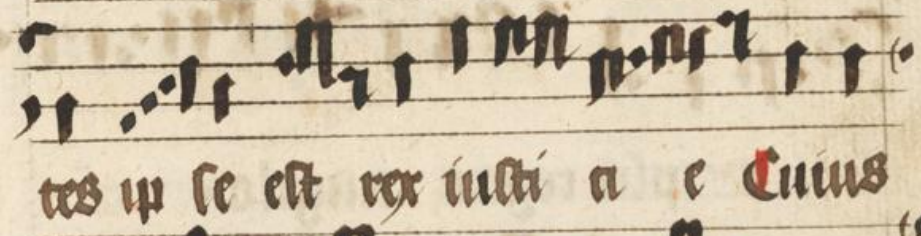 tes ip se est rex iusti ci e Cuius